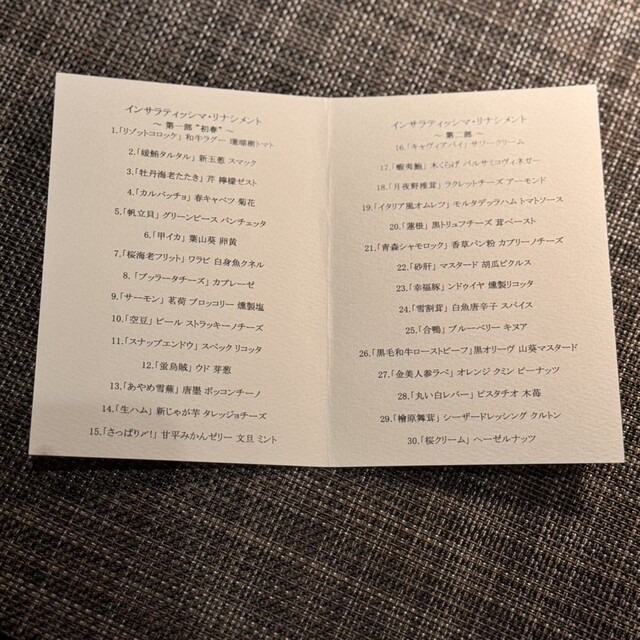 インサラティッシマ・リナシメント
～ 第一部 "初春" ～
1.「リゾットコロッケ」和牛ラグー 珊瑚樹トマト
2.「緩鮪タルタル」新玉葱 スマック
3.「牡丹海老たたき」芹 檸檬ゼスト
4.「カルパッチョ」春キャベツ 菊花
5.「帆立貝」グリーンピース パンチェッタ
6.「甲イカ」葉山葵 卵黄
7.「桜海老フリット」ワラビ 白身魚クネル
8.「ブッラータチーズ」カプレーゼ
9.「サーモン」茗荷 ブロッコリー 燻製塩
10.「空豆」ビール ストラッキーノチーズ
11.「スナップエンドウ」スペック リコッタ
12.「蛍烏賊」ウド 芽葱
13.「あやめ雪蕪」唐墨 ボッコンチーノ
14.「生ハム」新じゃが芋 タレッジョチーズ
15.「さっぱり〆!」甘平みかんゼリー 文旦 ミント
インサラティッシマ・リナシメント
～ 第二部 ～
16.「キャヴィアパイ」サワークリーム
17.「蝦夷鮑」木くらげ バルサミコヴィネガー
18.「月夜野椎茸」ラクレットチーズ アーモンド
19.「イタリア風オムレツ」モルタデッラハム トマトソース
20.「蓮根」黒トリュフチーズ 茸ペースト
21.「青森シャモロック」香草パン粉 カプリーノチーズ
22.「砂肝」マスタード 胡瓜ピクルス
23.「幸福豚」ンドゥイヤ 燻製リコッタ
24.「雪割茸」白魚唐辛子 スパイス
25.「合鴨」ブルーベリー キヌア
26.「黒毛和牛ローストビーフ」黒オリーヴ 山葵マスタード
27.「金美人参ラペ」オレンジ クミン ピーナッツ
28.「丸い白レバー」ピスタチオ 木苺
29.「檜原舞茸」シーザードレッシング クルトン
30.「桜クリーム」ヘーゼルナッツ